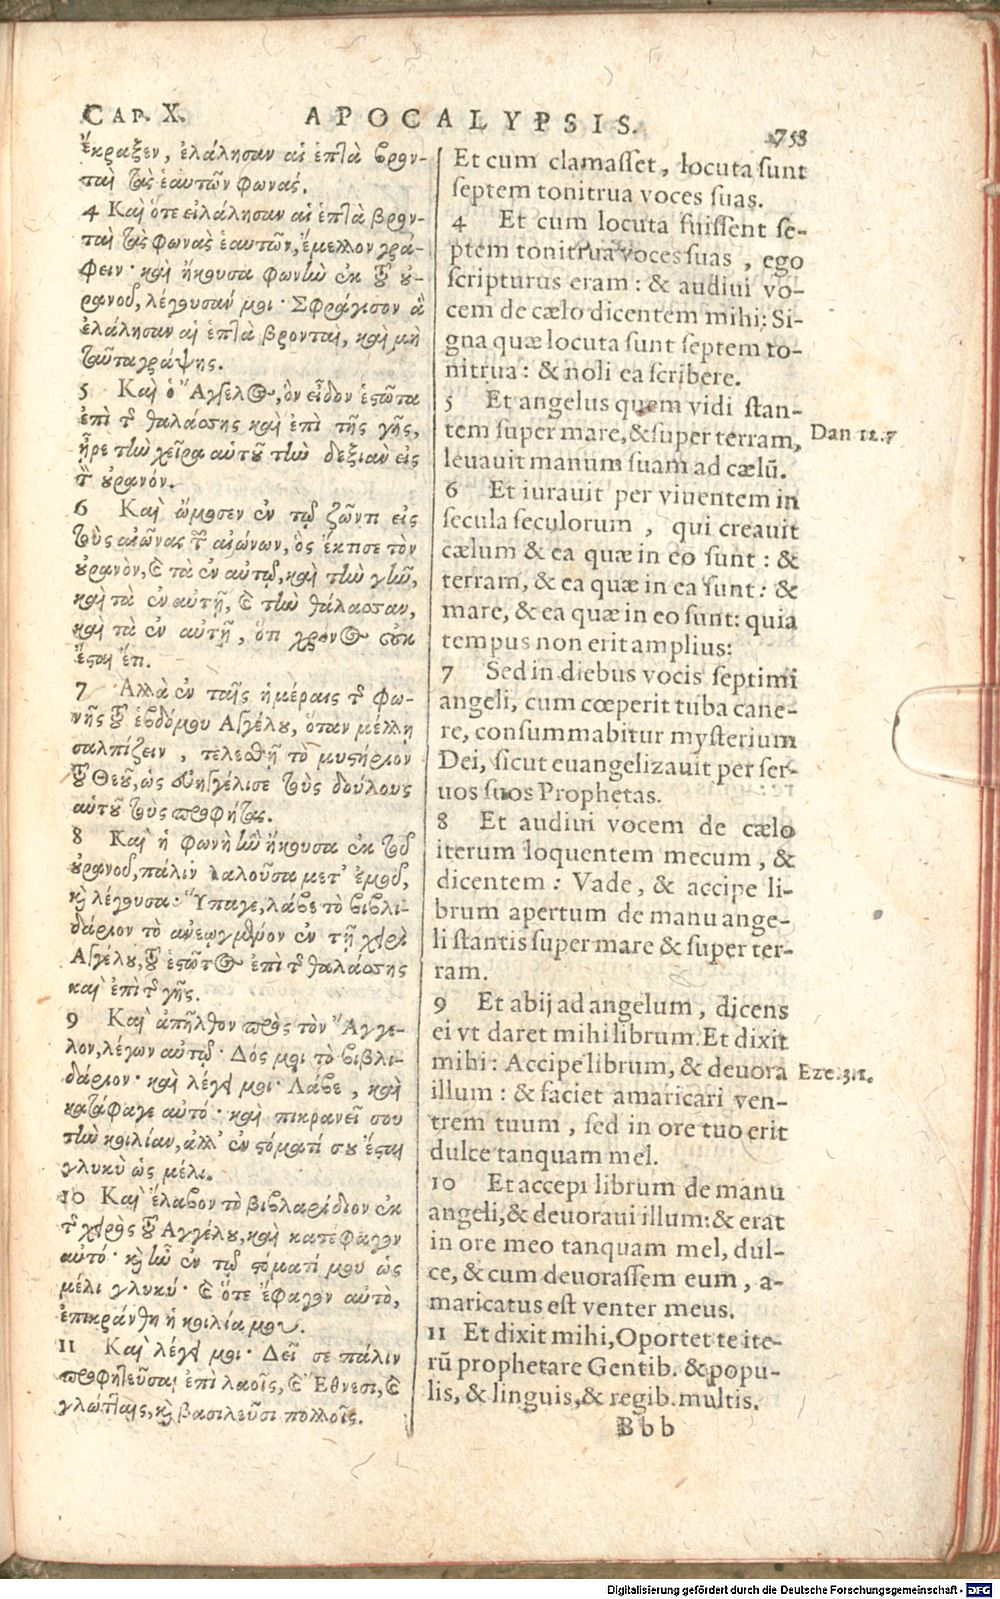 CAP. X. APOCALYPSIS. 753
ἔκραξεν, ἐλάλησαν αἱ ἑπτὰ βρον-
ταὶ τὰς ἑαυτῶν φωνάς.
4 Καὶ ὅτε εἰλάλησαν αἱ ἑπτὰ βρον-
ταὶ τὰς φωνὰς ἑαυτῶν, ἔμελλον γρά-
φειν· καὶ ἤκουσα φωνὴν ἐκ τοῦ οὐ-
ρανοῦ, λέγουσάν μοι· Σφράγισον ἃ
ἐλάλησαν αἱ ἑπτὰ βρονταὶ, καὶ μὴ
ταῦτα γράψῃς.
5 Καὶ ὁ Ἄγγελος, ὃν εἶδον ἑστῶτα
ἐπὶ τῆς θαλάσσης καὶ ἐπὶ τῆς γῆς,
ἦρε τὴν χεῖρα αὐτοῦ τὴν δεξιὰν εἰς
τὸν οὐρανόν.
6 Καὶ ὤμοσεν ἐν τῷ ζῶντι εἰς
τοὺς αἰῶνας τῶν αἰώνων, ὃς ἔκτισε τὸν
οὐρανὸν, καὶ τὰ ἐν αὐτῷ, καὶ τὴν γῆν,
καὶ τὰ ἐν αὐτῇ, καὶ τὴν θάλασσαν,
καὶ τὰ ἐν αὐτῇ, ὅτι χρόνος οὐκ
ἔσται ἔτι.
7 Ἀλλὰ ἐν ταῖς ἡμέραις τῆς φω-
νῆς τοῦ ἑβδόμου Ἀγγέλου, ὅταν μέλλῃ
σαλπίζειν, τελεσθῇ τὸ μυστήριον
τοῦ Θεοῦ, ὡς εὐηγγέλισε τοὺς δούλους
αὑτοῦ τοὺς προφήτας.
8 Καὶ ἡ φωνὴ ἣν ἤκουσα ἐκ τοῦ
οὐρανοῦ, πάλιν λαλοῦσα μετ' ἐμοῦ,
καὶ λέγουσα· Ὕπαγε, λάβε τὸ βιβλι-
δάριον τὸ ἀνεῳγμένον ἐν τῇ χειρὶ
Ἀγγέλου, τοῦ ἑστῶτος ἐπὶ τῆς θαλάσσης
καὶ ἐπὶ τῆς γῆς.
9 Καὶ ἀπῆλθον πρὸς τὸν Ἄγγε-
λον, λέγων αὐτῷ· Δός μοι τὸ βιβλι-
δάριον· καὶ λέγει μοι· Λάβε, καὶ
κατάφαγε αὐτό· καὶ πικρανεῖ σου
τὴν κοιλίαν, ἀλλ' ἐν στόματί σου ἔσται
γλυκὺ ὡς μέλι.
10 Καὶ ἔλαβον τὸ βιβλαρίδιον ἐκ
τῆς χειρὸς τοῦ Ἀγγέλου, καὶ κατέφαγον
αὐτό· καὶ ἦν ἐν τῷ στόματί μου ὡς
μέλι γλυκύ· καὶ ὅτε ἔφαγον αὐτὸ,
ἐπικράνθη ἡ κοιλία μου.
11 Καὶ λέγει μοι· Δεῖ σε πάλιν
προφητεῦσαι ἐπὶ λαοῖς, καὶ Ἔθνεσι, καὶ
γλώτταις, καὶ βασιλεῦσι πολλοῖς.
Et cum clamasset, locuta sunt
septem tonitrua voces suas.
4 Et cum locuta fuissent se-
ptem tonitrua voces suas, ego
scripturus eram: & audiui vo-
cem de cælo dicentem mihi: Si-
gna quæ locuta sunt septem to-
nitrua: & noli ea scribere.
5 Et angelus quem vidi stan-
tem super mare, & super terram,
leuauit manum suam ad cælū.
6 Et iurauit per viuentem in
secula seculorum, qui creauit
cælum & ea quæ in eo sunt: &
terram, & ea quæ in ea sunt: &
mare, & ea quæ in eo sunt: quia
tempus non erit amplius:
7 Sed in diebus vocis septimi
angeli, cum cœperit tuba cane-
re, consummabitur mysterium
Dei, sicut euangelizauit per ser-
uos suos Prophetas.
8 Et audiui vocem de cælo
iterum loquentem mecum, &
dicentem: Vade, & accipe li-
brum apertum de manu ange-
li stantis super mare & super ter-
ram.
9 Et abij ad angelum, dicens
ei vt daret mihi librum. Et dixit
mihi: Accipe librum, & deuora
illum: & faciet amaricari ven-
trem tuum, sed in ore tuo erit
dulce tanquam mel.
10 Et accepi librum de manu
angeli, & deuoraui illum: & erat
in ore meo tanquam mel, dul-
ce, & cum deuorassem eum, a-
maricatus est venter meus.
11 Et dixit mihi, Oportet te ite-
rū prophetare Gentib. & popu-
lis, & linguis, & regib. multis.
Dan 12.7
Eze. 3.1.
Bbb
Digitalisierung gefördert durch die Deutsche Forschungsgemeinschaft - DFG